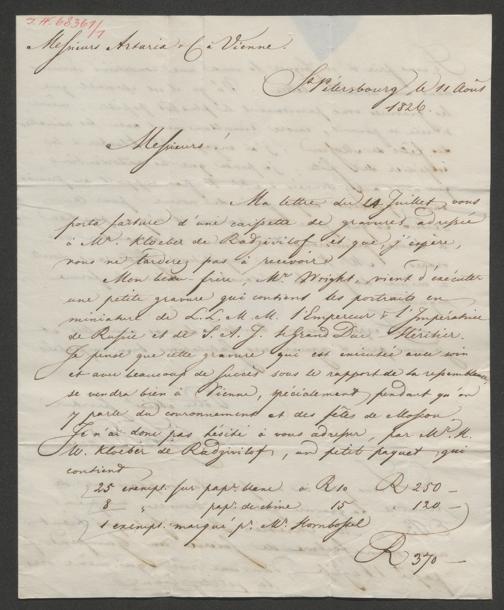 I.N. 68367/1
Messieurs Artaria & C. à Vienne.
St. Pétersbourg le 11 Août
1826.
Messieurs
Ma lettre du 14 Juillet, vous
porta facture d'une caissette de gravures adressée
à Mr. Kloeber de Radzivilof et que, j'espère,
vous ne tarderez pas à recevoir.
Mon beau-frère, Mr. Wright, vient d'exécuter
une petite gravure qui contient les portraits en
miniature de L.L. M.M. l'Empereur & l'Impératrice
de Russie et de S. A. I. le Grand Duc Héritier.
Je pense que cette gravure qui est exécutée avec soin
et avec beaucoup de succès sous le rapport de la ressemblance,
se vendra bien à Vienne, spécialement pendant qu'on
y parle du couronnement et des fêtes de Moscou.
Je n'ai donc pas hésité à vous adresser, par Mr.
W. Kloeber de Radzivilof, un petit paquet, qui
contient
25 exempl. sur papr. blanc à R 10 R 250 —
8 " papr. de chine 15 " 120 —
1 exempl. marqué pr. Mr. Hornbostel
R 370 —